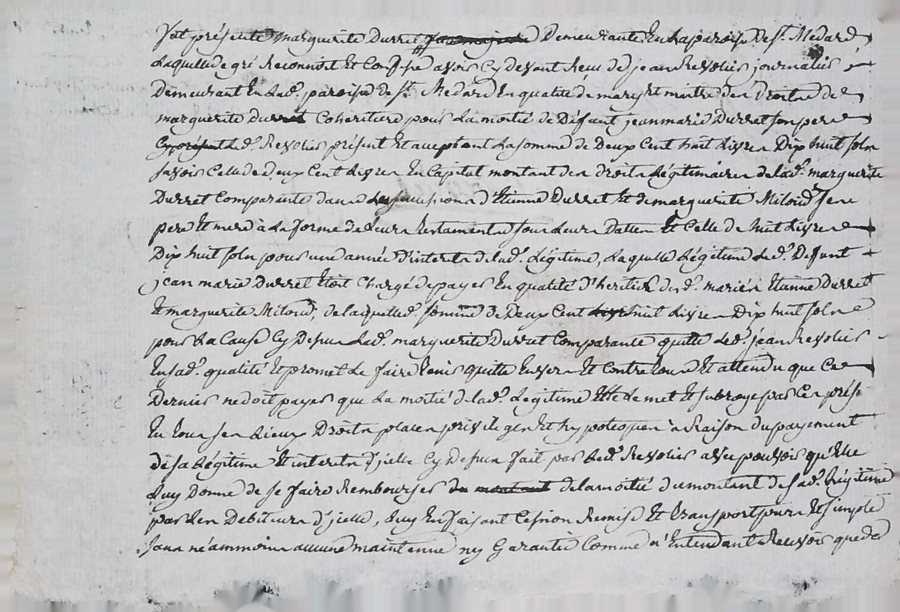 Fut présente marguerite Durret demeurante En la paroisse de st. Medard,
Laquelle de gré Reconnoit Et Confesse avoir Cy devant Reçu de jean Revolier journalier
Demeurant En lad. paroisse de st. Medard En qualité de mary Et maitre des Droits de
marguerite Durret Coheritiere pour La moitié de Défunt jean marie Durret son pere
Cy présent Led. Revolier présent Et acceptant La somme de Deux Cent huit Livres Dix huit sols
savoir Celle de deux Cent Livres En Capital montant des droits Légitimaires de lad. marguerite
Durret Comparante dans Les successions d'Etienne Durret Et de marguerite Miloud ses
pere Et mere à La forme de Leurs testaments sous Leurs Dattes Et Celle de huit Livres
Dix huit sols pour une année d'interets de lad. Légitime, Laquelle Légitime Led. Defunt
jean marie Durret Etoit Chargé de payer En qualité d'heritier de Etienne Durret
Et marguerite Miloud, de laquelle somme de Deux Cent huit Livres Dix huit sols
pour La Cause Cy Dessus Lad. marguerite Durret Comparante quitte Led. jean Revolier
En sad. qualité Et promet Le faire tenir quitte Envers Et Contre tous Et attendu que Ce
Dernier ne doit payer que La moitié de lad. Légitime Elle Le met Et subroge par Ces prés.
En tous ses Lieux Droits places privileges Et hypoteques à Raison du payement
de sa Légitime Et interets d'jcelle Cy Dessus fait par Led. Revolier avec pouvoir qu'Elle
Luy Donne de se faire Rembourser du montant de la moitié du montant de sad. Légitime
par Les Debiteurs d'jcelle, Luy En faisant Cession Remise Et transport purs Et simple
sans néammoins aucune maintenue ny Garantie Comme n'Entendant Recevoir que de